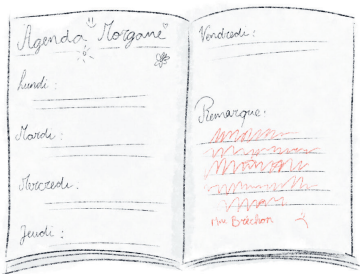 Agenda Morgane
Lundi :
Mardi :
Mercredi .
Jeudi :
Vendredi :
Remarque :
Mme Bréchon